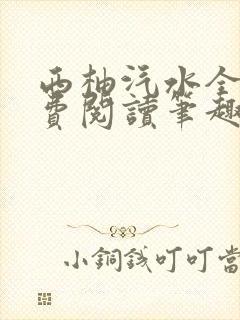 西柚汽水全
費閱讀筆趣
小銅錢叮叮當